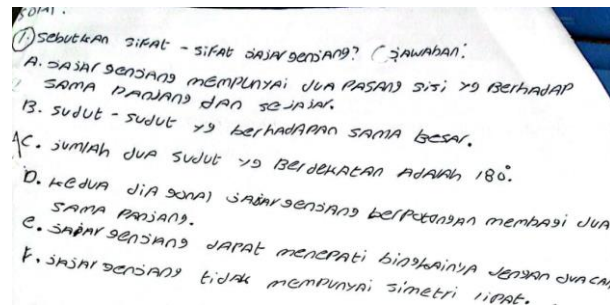 SOAL.
1. Sebutkan SiFAt - SiFAt JAJAr genJAng? (JAWABAn:
A. JAJAr genJAng mempunyai dua pasang sisi yg berhadap
SAMA PANJANG dan seJAJAr.
B. Sudut - sudut yg berhadapan sama besar.
C. Jumlah dua sudut yg Berdekatan Adalah 180°.
D. Kedua diagonal JAJArgenJAng berpotongan membagi dua
SAMA PANJANG.
e. JAJArgenJAng dapat menepati bingkainya dengan dua car
F. JAJArgenJAng tidak mempunyai simetri lipat.